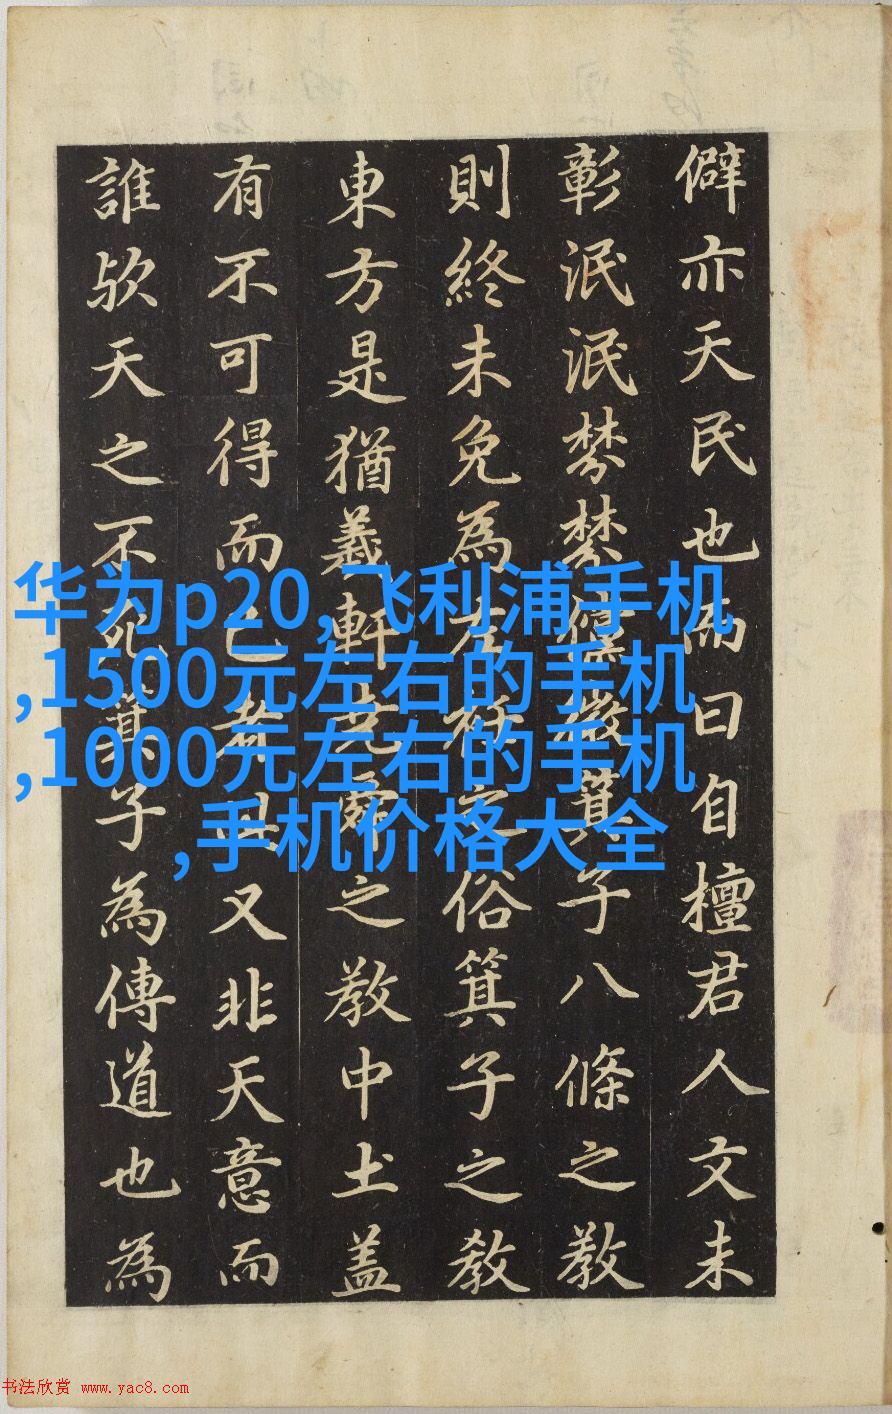 僻亦天民也而曰自檀君人文未
彰泯泯棼棼儻微箕子八條之教
則終未免為左衽之俗箕子之教
東方是猶羲軒堯舜之教中土盖
有不可得而已者又非天意而
誰欤天之不死箕子為傳道也為
华为p20,飞利浦手机
,1500元左右的手机
,1000元左右的手机
,手机价格大全
书法欣赏 www.yac8.com